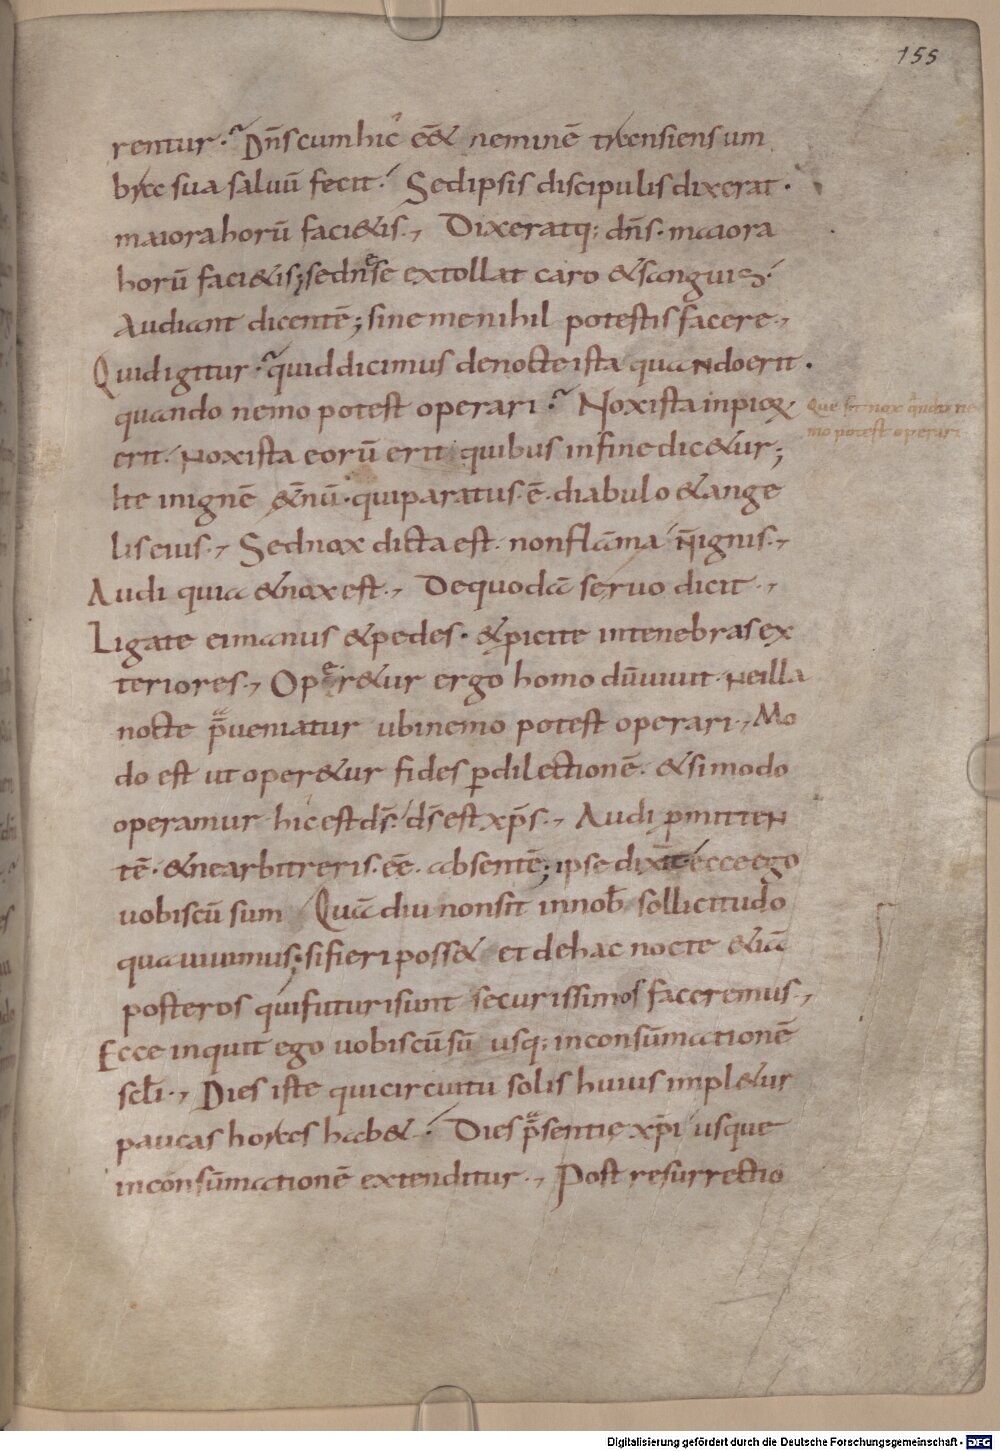 155
rentur. Dn̄s cum hic eēt neminē transiens um
bra sua saluū fecit. Sed ipsis discipulis dixerat.
maiora horū facietis., Dixeratq; dn̄s. maiora
horū facietis; sed ne se extollat caro & sanguis.
Audiant dicentē; sine me nihil potestis facere.,
Quid igitur. quid dicimus de nocte ista quando erit.
quando nemo potest operari. Nox ista inpior
Que sit nox qndo ne
mo potest operari
erit. Nox ista eorū erit quibus in fine dicetur;
Ite in ignē etnū. qui paratus. ē. diabulo & ange
lis eius., Sed nox dicta est. non flāma n̄ ignis.,
Audi quia & nox est., De quodā seruo dicit.,
Ligate ei manus & pedes. & picite in tenebras ex
teriores., Operetur ergo homo dū uiuit. Ne illa
nocte p̄ueniatur ubi nemo potest operari., Mo
do est ut operetur fides p dilectionē. & si modo
operamur hic est ds̄. ds̄ est xp̄s., Audi pmitten
tē. & ne arbitreris. eē. absentē; ipse dixit ecce ego
uobiscū sum Quā diu non sit in nob̄ sollicitudo
qua uiuimus; si fieri posset et de hac nocte etiā
posteros qui futuri sunt securissimos faceremus.,
Ecce inquit ego uobiscū sū usq; in consūmationē
scl̄i., Dies iste qui circuitu solis huius impletur
paucas horas habet. Dies p̄sentie xp̄i usque
in consūmationē extenditur., Post resurrectio
Digitalisierung gefördert durch die Deutsche Forschungsgemeinschaft - DFG